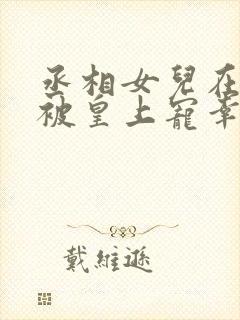 丞相女兒在
被皇上寵幸
戴維遜